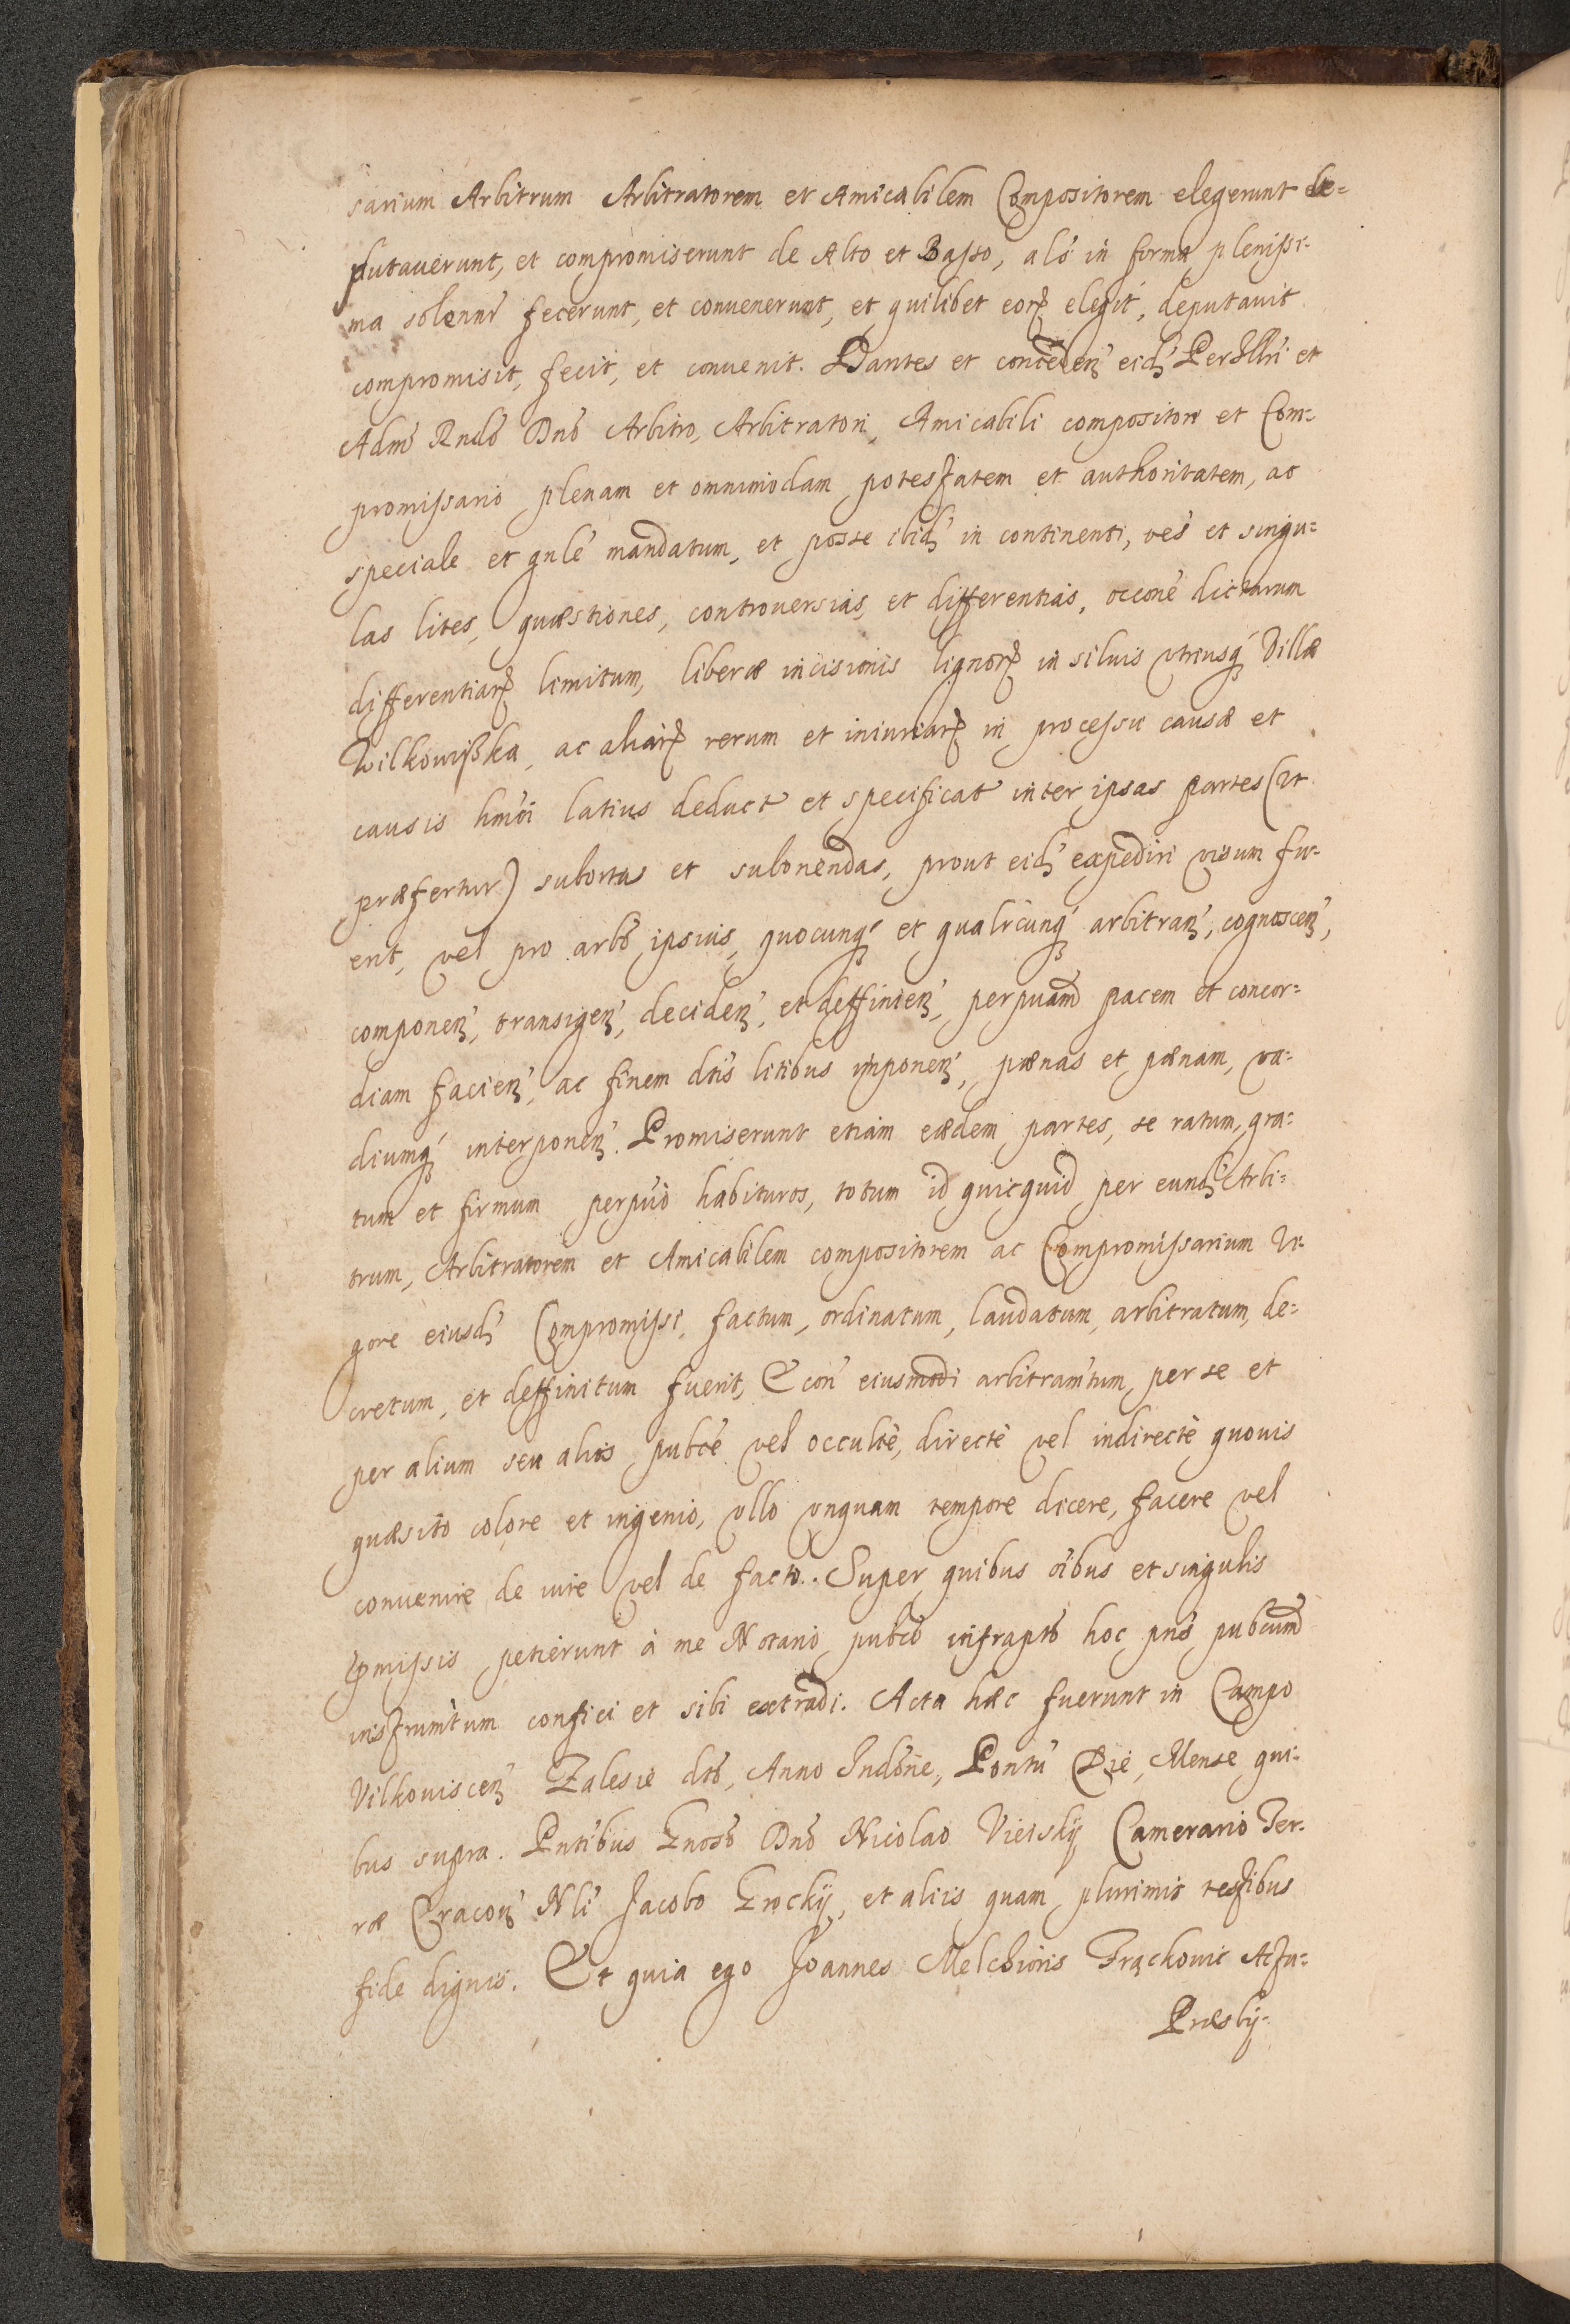 sarium Arbitrum Arbitratorem et Amicabilem Compositorem elegerunt de-
putauerunt, et compromiserunt de Alto et Basso, als in forma plenissi-
ma solenni fecerunt, et conuenerunt, et quilibet eorꝝ elegit, deputauit
compromisit, fecit, et conuenit. Dantes et conceden̄ eid̄ Perillri et
Adm̄ Rndo Dno Arbitro, Arbitratori, Amicabili compositori et Com-
promissario plenam et omnimodam potestatem et authoritatem, ac
speciale et gnle mandatum, et posse ibid̄ in continenti, oes et singu-
las lites, quæstiones, controuersias, et differentias, occone dictarum
differentiarꝝ limitum, liberæ incisionis lignorꝝ in siluis vtriusq̄ Villæ
Wilkowißka, ac aliarꝝ rerum et iniuriarꝝ in processu causæ et
causis hmoi latius deduct et specificat inter ipsas partes (vt
præfertur) subortas et suboriendas, prout eid̄ expediri visum fu-
erit, vel pro arbo ipsius, quocunq̄ et qualicunq̄ arbitran̄, cognoscen̄,
componen̄, transigen̄, deciden̄, et deffinien̄, perpuam pacem et concor-
diam facien̄, ac finem dtis litibus imponen̄, pænas et pænam, va-
diumq̄ interponen̄. Promiserunt etiam eædem partes, se ratum, gra-
tum et firmum perpuo habituros, totum id quicquid per eund̄ Arbi-
trum, Arbitratorem et Amicabilem compositorem ac Compromissarium Vi-
gore eiusd̄ Compromissi, factum, ordinatum, laudatum, arbitratum, de-
cretum, et deffinitum fuerit, Et con̄ eiusmodi arbitramtum, per se et
per alium seu alios pubce vel occultè, directè vel indirectè quouis
quæsito colore et ingenio, vllo vnquam tempore dicere, facere vel
conuenire de iure vel de facto. Super quibus oibus et singulis
p̄missis petierunt à me Notario pubco infrapto hoc pns pubcum
instrumtum confici et sibi extradi. Acta hæc fuerunt in Campo
Vilkouiscen̄ Zalesie dto, Anno Indone, Pontu Die, Mense qui-
bus supra. Pntibus Gnoso Dno Nicolao Vieiskij Camerario Ter-
ræ Cracon̄ Nli Jacobo Grockij, et aliis quam plurimis testibus
fide dignis. Et quia ego Joannes Melchioris Frąckouic
Præsbij-